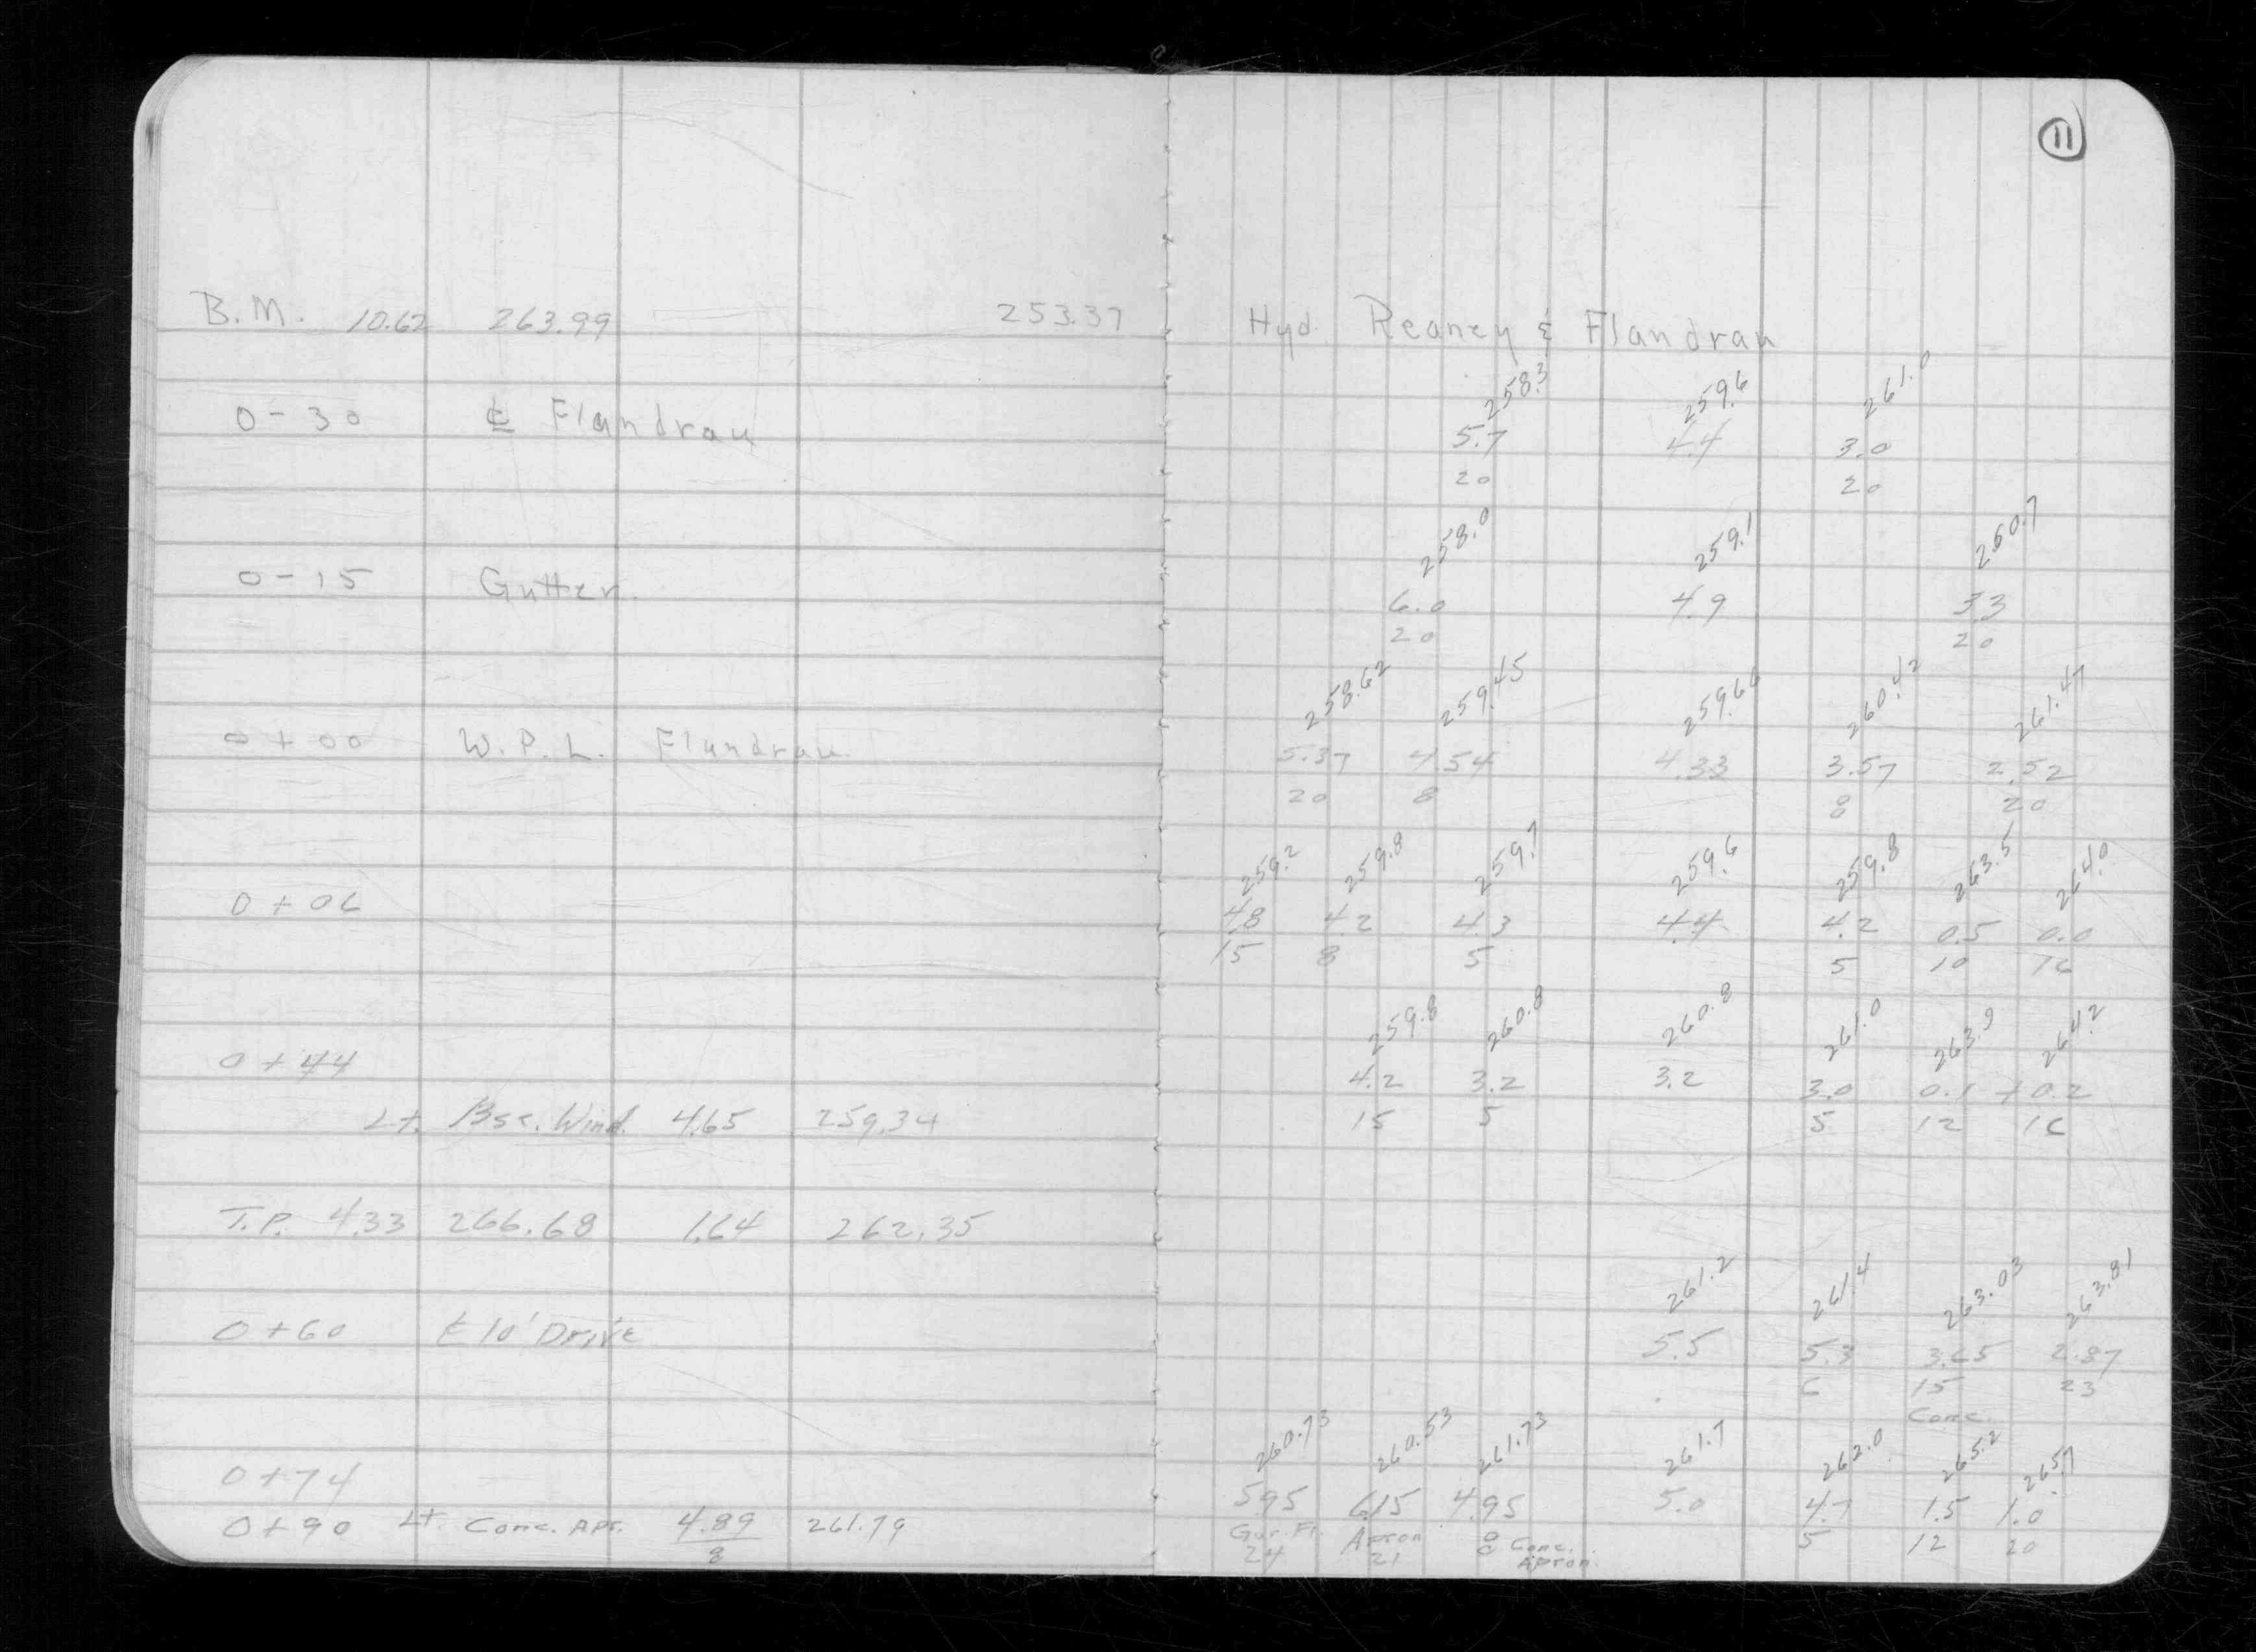 11
B.M. 10.62 263.99 253.37 Hyd. Reaney & Flandrau
258.3 259.6 261.0
0-30 ℄ Flandrau 5.7 4.4 3.0
20 20
258.0 259.1 260.7
0-15 Gutter 6.0 4.9 3.3
20 20
258.62 259.45 259.66 260.42 261.47
0+00 W.P.L. Flandrau 5.37 4.54 4.33 3.57 2.52
20 8 8 20
259.2 259.8 259.7 259.6 259.8 263.5 264.0
0+06 4.8 4.2 4.3 4.4 4.2 0.5 0.0
15 8 5 5 10 16
259.8 260.8 260.8 261.0 263.9 264.2
0+44 4.2 3.2 3.2 3.0 0.1 +0.2
Lt. Bse. Wind. 4.65 259.34 15 5 5 12 16
T.P. 4.33 266.68 1.64 262.35
261.2 261.4 263.03 263.81
0+60 ℄ 10' Drive 5.5 5.3 3.65 2.87
6 15 23
Conc.
260.73 260.53 261.73 261.7 262.0 265.2 265.7
0+74 5.95 6.15 4.95 5.0 4.7 1.5 1.0
0+90 Lt. Conc. Apr. 4.89 261.79 Gar. Fl. Apron 8 Conc. 5 12 20
8 24 21 Apron